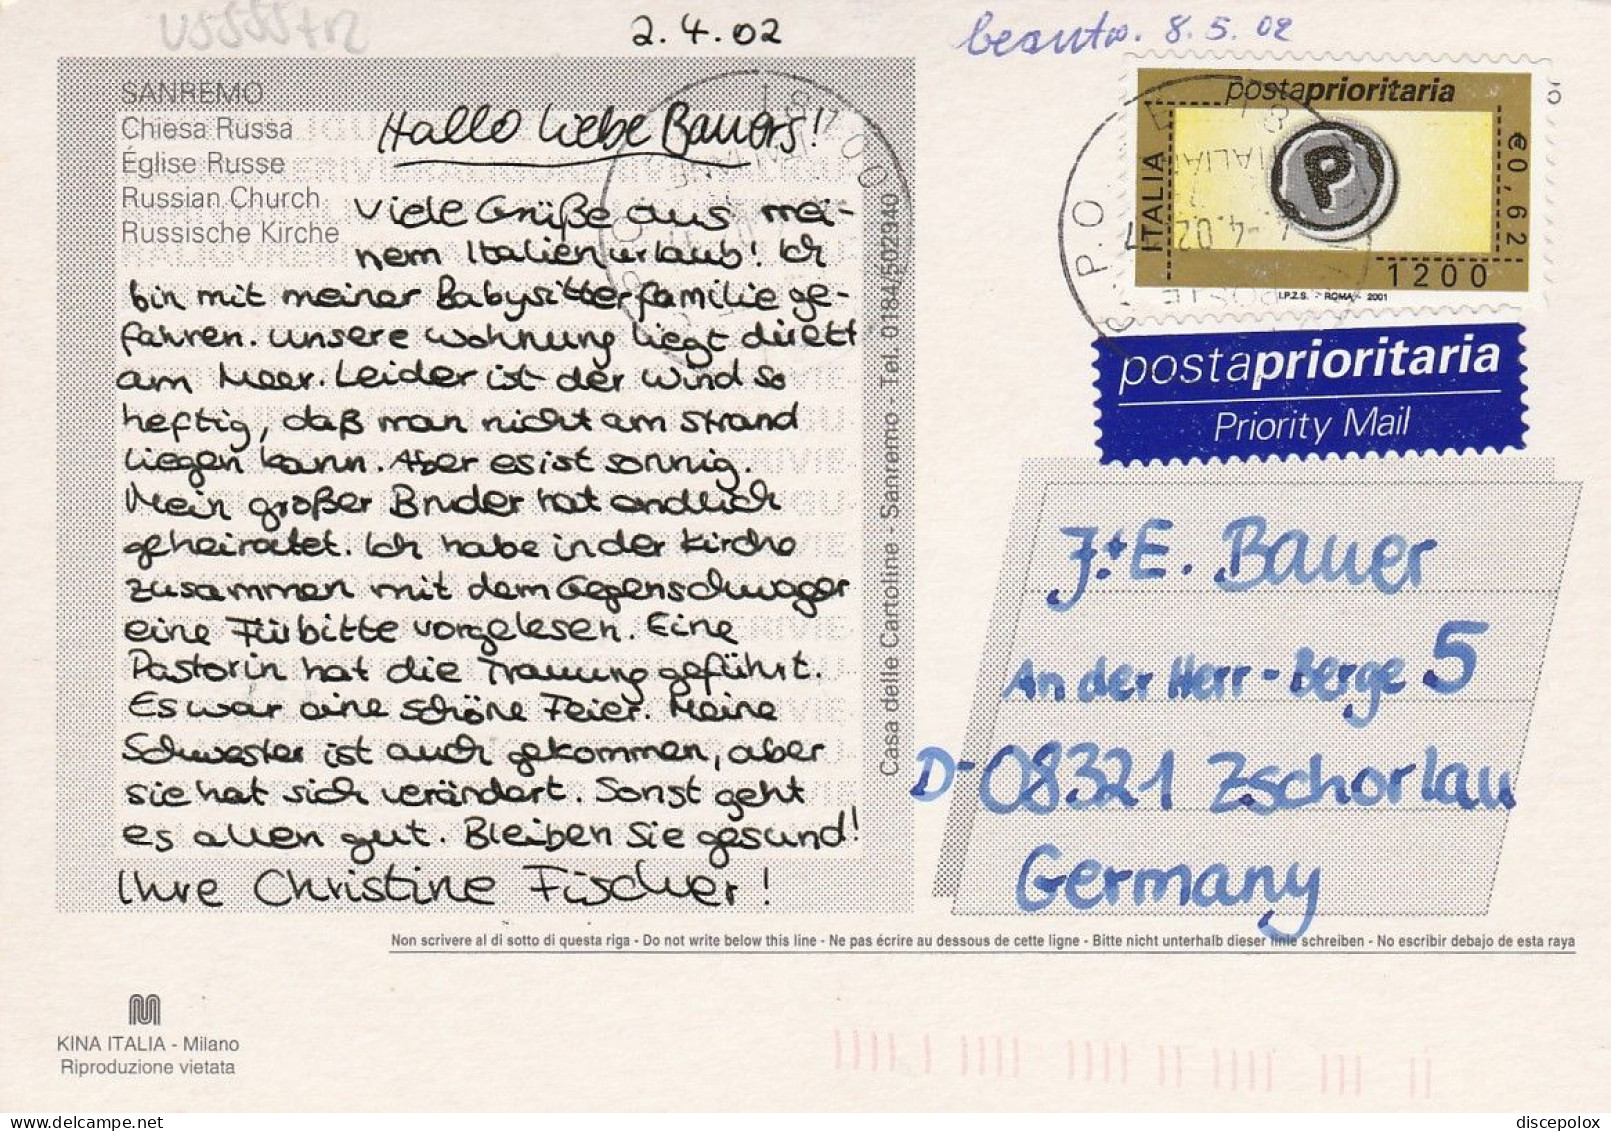 2.4.02
beantw. 8.5.02
SANREMO
Chiesa Russa
Église Russe
Russian Church
Russische Kirche
Hallo liebe Bauers!
Viele Grüße aus mei-
nem Italienurlaub! Ich
bin mit meiner Babysitterfamilie ge-
fahren. Unsere Wohnung liegt direkt
am Meer. Leider ist der Wind so
heftig, daß man nicht am Strand
liegen kann. Aber es ist sonnig.
Mein großer Bruder hat endlich
geheiratet. Ich habe in der Kirche
zusammen mit dem Gegenschwager
eine Fürbitte vorgelesen. Eine
Pastorin hat die Trauung geführt.
Es war eine schöne Feier. Meine
Schwester ist auch gekommen, aber
sie hat sich verändert. Sonst geht
es allen gut. Bleiben Sie gesund!
Ihre Christine Fischer!
Casa delle Cartoline - Sanremo - Tel. 0184/502940
postaprioritaria
ITALIA
P
€0,62
1200
I.P.Z.S. - ROMA - 2001
postaprioritaria
Priority Mail
J.+E. Bauer
An der Herr-Berge 5
D-08321 Zschorlau
Germany
Non scrivere al di sotto di questa riga - Do not write below this line - Ne pas écrire au dessous de cette ligne - Bitte nicht unterhalb dieser linie schreiben - No escribir debajo de esta raya
KINA ITALIA - Milano
Riproduzione vietata
discepolox